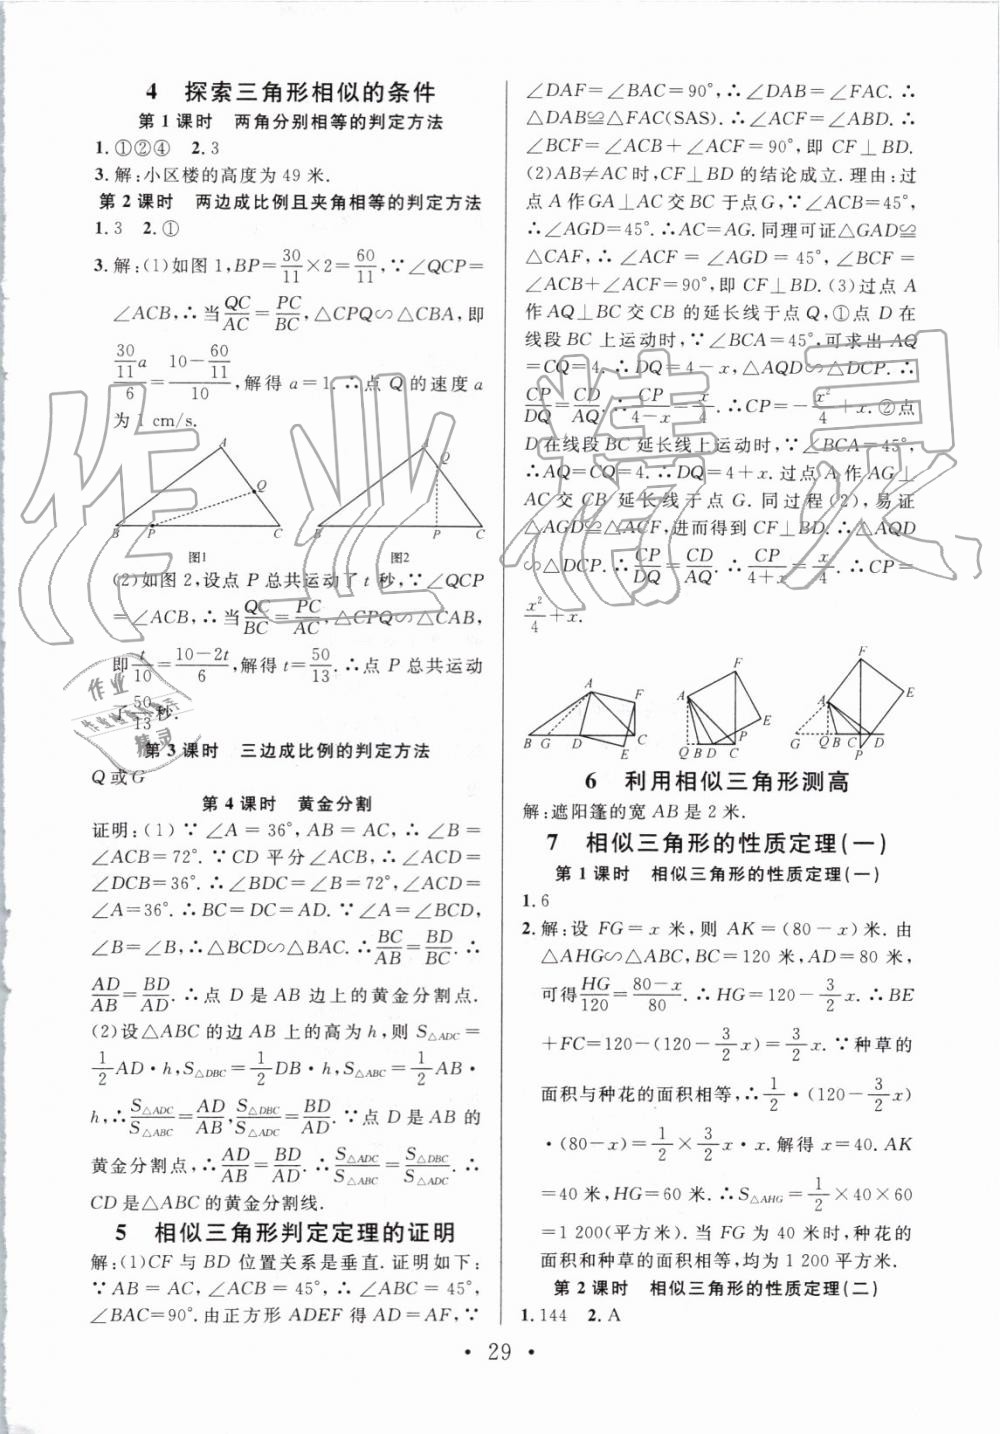 4 探索三角形相似的条件
第1课时 两角分别相等的判定方法
1.①②④ 2.3
3.解:小区楼的高度为49米.
第2课时 两边成比例且夹角相等的判定方法
1.3 2.①
3.解:(1)如图1,BP=30/11×2=60/11,∵∠QCP=
∠ACB,∴当QC/AC=PC/BC,△CPQ∽△CBA,即
(30/11 a)/6=(10-60/11)/10,解得a=1.∴点Q的速度a
为1 cm/s.
A
Q
B P C
图1
A
Q
B P C
图2
(2)如图2,设点P总共运动了t秒,∵∠QCP
=∠ACB,∴当QC/BC=PC/AC,△CPQ∽△CAB,
即t/10=(10-2t)/6,解得t=50/13.∴点P总共运动
了50/13秒.
第3课时 三边成比例的判定方法
Q或G
第4课时 黄金分割
证明:(1)∵∠A=36°,AB=AC,∴∠B=
∠ACB=72°.∵CD平分∠ACB,∴∠ACD=
∠DCB=36°.∴∠BDC=∠B=72°,∠ACD=
∠A=36°.∴BC=DC=AD.∵∠A=∠BCD,
∠B=∠B,∴△BCD∽△BAC.∴BC/AB=BD/BC.∴
AD/AB=BD/AD.∴点D是AB边上的黄金分割点.
(2)设△ABC的边AB上的高为h,则S△ADC=
1/2AD·h,S△DBC=1/2DB·h,S△ABC=1/2AB·
h,∴S△ADC/S△ABC=AD/AB,S△DBC/S△ADC=BD/AD.∵点D是AB的
黄金分割点,∴AD/AB=BD/AD.∴S△ADC/S△ABC=S△DBC/S△ADC.∴
CD是△ABC的黄金分割线.
5 相似三角形判定定理的证明
解:(1)CF与BD位置关系是垂直.证明如下:
∵AB=AC,∠ACB=45°,∴∠ABC=45°,
∠BAC=90°.由正方形ADEF得AD=AF,∵
∠DAF=∠BAC=90°,∴∠DAB=∠FAC.∴
△DAB≌△FAC(SAS).∴∠ACF=∠ABD.∴
∠BCF=∠ACB+∠ACF=90°,即CF⊥BD.
(2)AB≠AC时,CF⊥BD的结论成立.理由:过
点A作GA⊥AC交BC于点G,∵∠ACB=45°,
∴∠AGD=45°.∴AC=AG.同理可证△GAD≌
△CAF,∴∠ACF=∠AGD=45°,∠BCF=
∠ACB+∠ACF=90°,即CF⊥BD.(3)过点A
作AQ⊥BC交CB的延长线于点Q,①点D在
线段BC上运动时,∵∠BCA=45°,可求出AQ
=CQ=4.∴DQ=4-x,△AQD∽△DCP.∴
CP/DQ=CD/AQ.∴CP/(4-x)=x/4.∴CP=-x²/4+x.②点
D在线段BC延长线上运动时,∵∠BCA=45°,
∴AQ=CQ=4.∴DQ=4+x.过点A作AG⊥
AC交CB延长线于点G.同过程(2),易证
△AGD≌△ACF,进而得到CF⊥BD.∴△AQD
∽△DCP.∴CP/DQ=CD/AQ.∴CP/(4+x)=x/4.∴CP=
x²/4+x.
A F
B G D C
E
F
A
E
P
Q B D C
F
A E
G Q B C D
P
6 利用相似三角形测高
解:遮阳篷的宽AB是2米.
7 相似三角形的性质定理(一)
第1课时 相似三角形的性质定理(一)
1.6
2.解:设FG=x米,则AK=(80-x)米.由
△AHG∽△ABC,BC=120米,AD=80米,
可得HG/120=(80-x)/80.∴HG=120-3/2x.∴BE
+FC=120-(120-3/2x)=3/2x.∵种草的
面积与种花的面积相等,∴1/2·(120-3/2x)
·(80-x)=1/2×3/2x·x.解得x=40.AK
=40米,HG=60米.∴S△AHG=1/2×40×60
=1 200(平方米).当FG为40米时,种花的
面积和种草的面积相等,均为1 200平方米.
第2课时 相似三角形的性质定理(二)
1.144 2.A
·29·
作业精灵
作业
作业检查找精灵
精灵